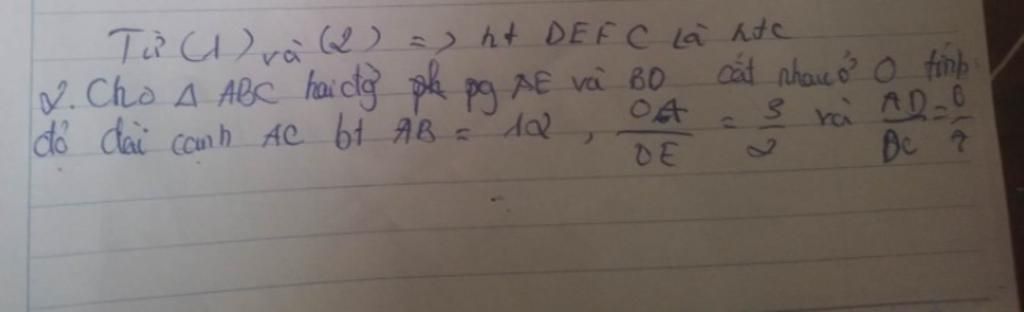 Từ (1) và (2) => ht DEFC là htc
2. Cho Δ ABC hai đg pg AE và BD cắt nhau ở O tính
độ dài cạnh AC bt AB = 12, OA/OE = 3/2 và AD/DC = 6/7